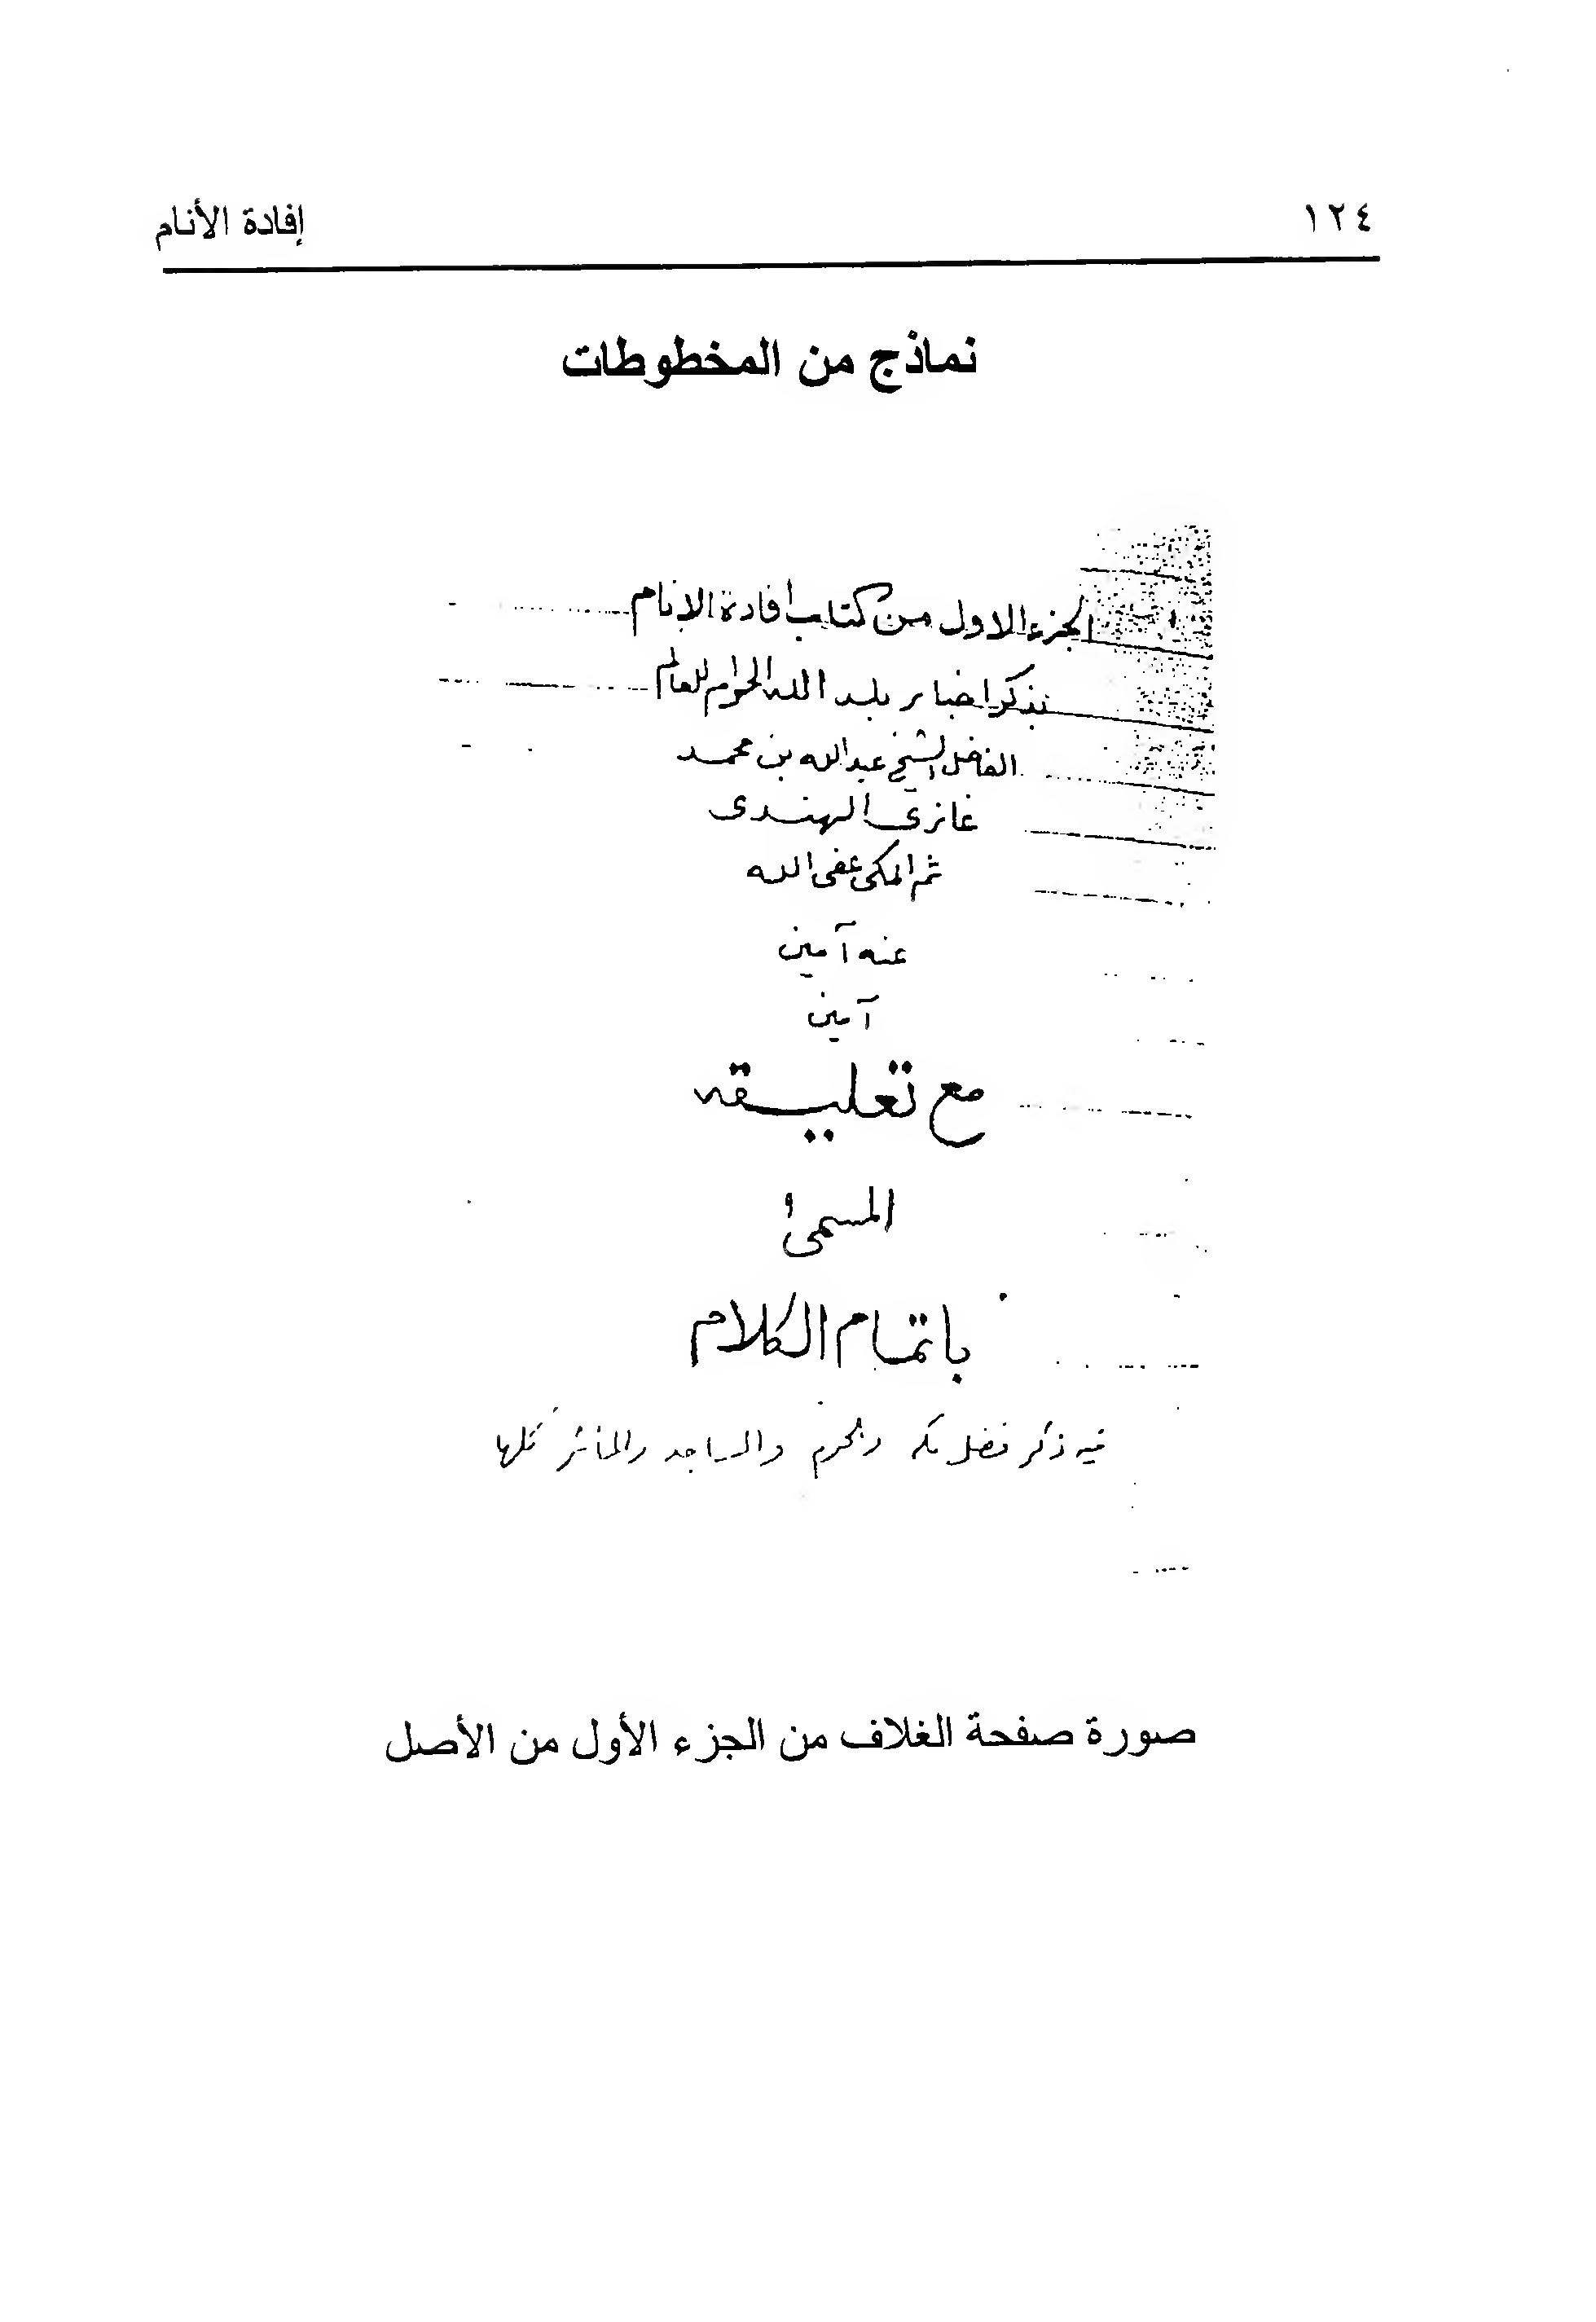 ١٢٤
إفادة الأنام
نماذج من المخطوطات
الجزء الاول من كتاب افادة الانام
بذكر اخبار بلد الله الحرام للعالم
الفاضل الشيخ عبدالله بن محمد
غازى الهندى
ثم المكى عفى الله
عنه آمين
آمين
مع تعليقه
المسمى
باتمام الكلام
فيه ذكر فضل مكه والحرم والمساجد والمآثر كلها
صورة صفحة الغلاف من الجزء الأول من الأصل